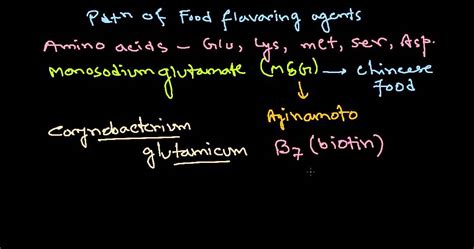 Pdtn of Food flavaring agents
Amino acids – Glu, Lys, met, Ser, Asp.
Monosodium glutamate (MSG) → Chineese Food
↓
Aginamoto
Corynebacterium glutamicum
B7 (biotin)